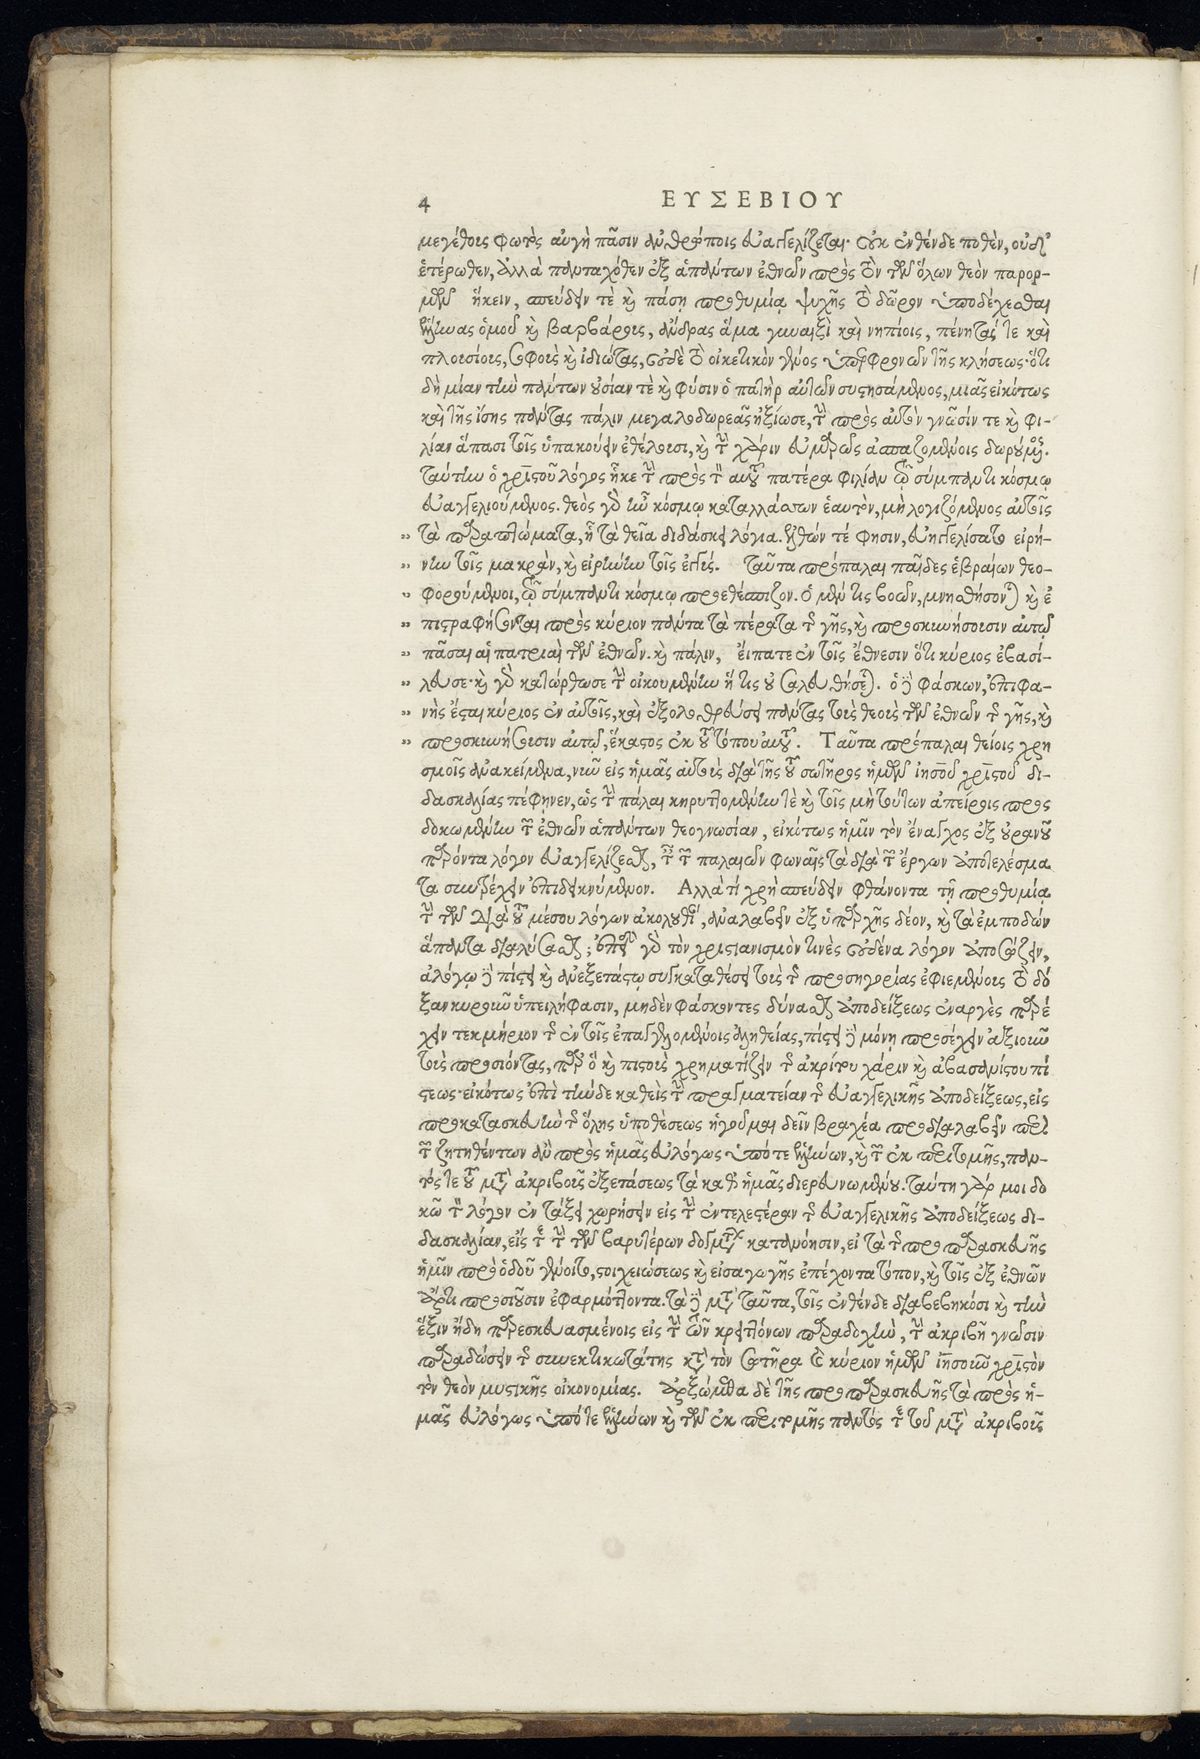 4 ΕΥΣΕΒΙΟΥ
μεγέθους φωτὸς αὐγὴ πᾶσιν ἀνθρώποις εὐαγγελίζεται· οὐκ ἐνθένδε ποθὲν, οὐδ'
ἑτέρωθεν, ἀλλὰ πανταχόθεν ἐξ ἁπάντων ἐθνῶν πρὸς τὸν τῶν ὅλων θεὸν παρορ-
μῶν ἥκειν, σπεύδειν τὲ καὶ πάσῃ προθυμίᾳ ψυχῆς τὸ δῶρον ὑποδέχεσθαι
ἕλληνας ὁμοῦ καὶ βαρβάρους, ἄνδρας ἅμα γυναιξὶ καὶ νηπίοις, πένητάς τε καὶ
πλουσίους, σοφοὺς καὶ ἰδιώτας, οὐδὲ τὸ οἰκετικὸν γένος ὑπερφρονῶν τῆς κλήσεως· ὅτι
δὴ μίαν τὴν πάντων οὐσίαν τὲ καὶ φύσιν ὁ πατὴρ αὐτῶν συστησάμενος, μιᾶς εἰκότως
καὶ τῆς ἴσης πάντας πάλιν μεγαλοδωρεᾶς ἠξίωσε, τὴν πρὸς αὐτὸν γνῶσίν τε καὶ φι-
λίαν ἅπασι τοῖς ὑπακούειν ἐθέλουσι, καὶ τὴν χάριν ἑτοίμως ἀσπαζομένοις δωρούμενος.
ταύτην ὁ χριστοῦ λόγος ἧκε τὴν πρὸς τὸν αὐτοῦ πατέρα φιλίαν τῷ σύμπαντι κόσμῳ
εὐαγγελιούμενος. θεὸς γὰρ ἦν κόσμῳ καταλλάσσων ἑαυτὸν, μὴ λογιζόμενος αὐτοῖς
" τὰ παραπτώματα, ᾗ τὰ θεῖα διδάσκει λόγια. ἐλθών τέ φησιν, εὐηγγελίσατο εἰρή-
" νην τοῖς μακρὰν, καὶ εἰρήνην τοῖς ἐγγύς. ταῦτα πρόπαλαι παῖδες ἑβραίων θεο-
" φορούμενοι, τῷ σύμπαντι κόσμῳ προεθέσπιζον. ὁ μέν τις βοῶν, μνησθήσονται καὶ ἐ
" πιστραφήσονται πρὸς κύριον πάντα τὰ πέρατα τῆς γῆς, καὶ προσκυνήσουσιν αὐτῷ
" πᾶσαι αἱ πατριαὶ τῶν ἐθνῶν. καὶ πάλιν, εἴπατε ἐν τοῖς ἔθνεσιν ὅτι κύριος ἐβασί-
" λευσε· καὶ γὰρ κατώρθωσε τὴν οἰκουμένην ἥτις οὐ σαλευθήσεται. ὁ δὲ φάσκων, ἐπιφα-
" νὴς ἔσται κύριος ἐν αὐτοῖς, καὶ ἐξολοθρεύσει πάντας τοὺς θεοὺς τῶν ἐθνῶν τῆς γῆς, καὶ
" προσκυνήσουσιν αὐτῷ, ἕκαστος ἐκ τοῦ τόπου αὐτοῦ. Ταῦτα πρόπαλαι θείοις χρη
σμοῖς ἀνακείμενα, νῦν εἰς ἡμᾶς αὐτοὺς διὰ τῆς τοῦ σωτῆρος ἡμῶν ἰησοῦ χριστοῦ δι-
δασκαλίας πέφηνεν, ὡς τὴν πάλαι κηρυττομένην τὲ καὶ τοῖς μὴ τούτων ἀπείροις προς
δοκωμένην τῶν ἐθνῶν ἁπάντων θεογνωσίαν, εἰκότως ἡμῖν τὸν ἔναγχος ἐξ οὐρανοῦ
παρόντα λόγον εὐαγγελίζεσθαι, ταῖς τῶν παλαιῶν φωναῖς τὰ διὰ τῶν ἔργων ἀποτελέσμα
τα συντρέχειν ἐπιδεικνύμενον. Ἀλλὰ τί χρὴ σπεύδειν φθάνοντα τῇ προθυμίᾳ
τὴν τῶν διὰ τοῦ μέσου λόγων ἀκολουθίαν, ἀναλαβεῖν ἐξ ὑπαρχῆς δέον, καὶ τὰ ἐμποδὼν
ἅπαντα διαλύσασθαι; ἐπεὶ γὰρ τὸν χριστιανισμὸν τινὲς οὐδένα λόγον ἀποσώζειν,
ἀλόγῳ δὲ πίστει καὶ ἀνεξετάστῳ συγκαταθέσει τοὺς τῆς προσηγορίας ἐφιεμένους τὸ δό
ξαν κυροῦν ὑπειλήφασιν, μηδὲν φάσκοντες δύνασθαι ἀποδείξεως ἐναργὲς παρέ
χειν τεκμήριον τῆς ἐν τοῖς ἐπαγγελλομένοις ἀληθείας, πίστει δὲ μόνῃ προσέχειν ἀξιοῦν
τοὺς προσιόντας, παρ' ὃ καὶ πιστοὺς χρηματίζειν τῆς ἀκρίτου χάριν καὶ ἀβασανίστου πί
στεως· εἰκότως ἐπὶ τήνδε καθεὶς τὴν πραγματείαν τῆς εὐαγγελικῆς ἀποδείξεως, εἰς
προκατασκευὴν τῆς ὅλης ὑποθέσεως ἡγοῦμαι δεῖν βραχέα προδιαλαβεῖν περὶ
τῶν ζητηθέντων ἂν πρὸς ἡμᾶς εὐλόγως ὑπό τε ἑλλήνων, καὶ τῶν ἐκ περιτομῆς, παν-
τός τε τοῦ μετὰ ἀκριβοῦς ἐξετάσεως τὰ καθ' ἡμᾶς διερευνωμένου. ταύτῃ γάρ μοι δο
κῶ τὸν λόγον ἐν τάξει χωρήσειν εἰς τὴν ἐντελεστέραν τῆς εὐαγγελικῆς ἀποδείξεως δι-
δασκαλίαν, εἴς τε τὴν τῶν βαρυτέρων δογμάτων κατανόησιν, εἰ τὰ τῆς προπαρασκευῆς
ἡμῖν πρὸ ὁδοῦ γένοιτο, στοιχειώσεως καὶ εἰσαγωγῆς ἐπέχοντα τόπον, καὶ τοῖς ἐξ ἐθνῶν
ἄρτι προσιοῦσιν ἐφαρμόττοντα. τὰ δὲ μετὰ ταῦτα, τοῖς ἐνθένδε διαβεβηκόσι καὶ τὴν
ἕξιν ἤδη παρεσκευασμένοις εἰς τὴν τῶν κρειττόνων παραδοχὴν, τὴν ἀκριβῆ γνῶσιν
παραδώσειν τῆς συνεκτικωτάτης κατὰ τὸν σωτῆρα καὶ κύριον ἡμῶν ἰησοῦν χριστὸν
τὸν θεὸν μυστικῆς οἰκονομίας. ἀρξώμεθα δὲ τῆς προπαρασκευῆς τὰ πρὸς ἡ-
μᾶς εὐλόγως ὑπό τε ἑλλήνων καὶ τῶν ἐκ περιτομῆς παντός τε τοῦ μετὰ ἀκριβοῦς